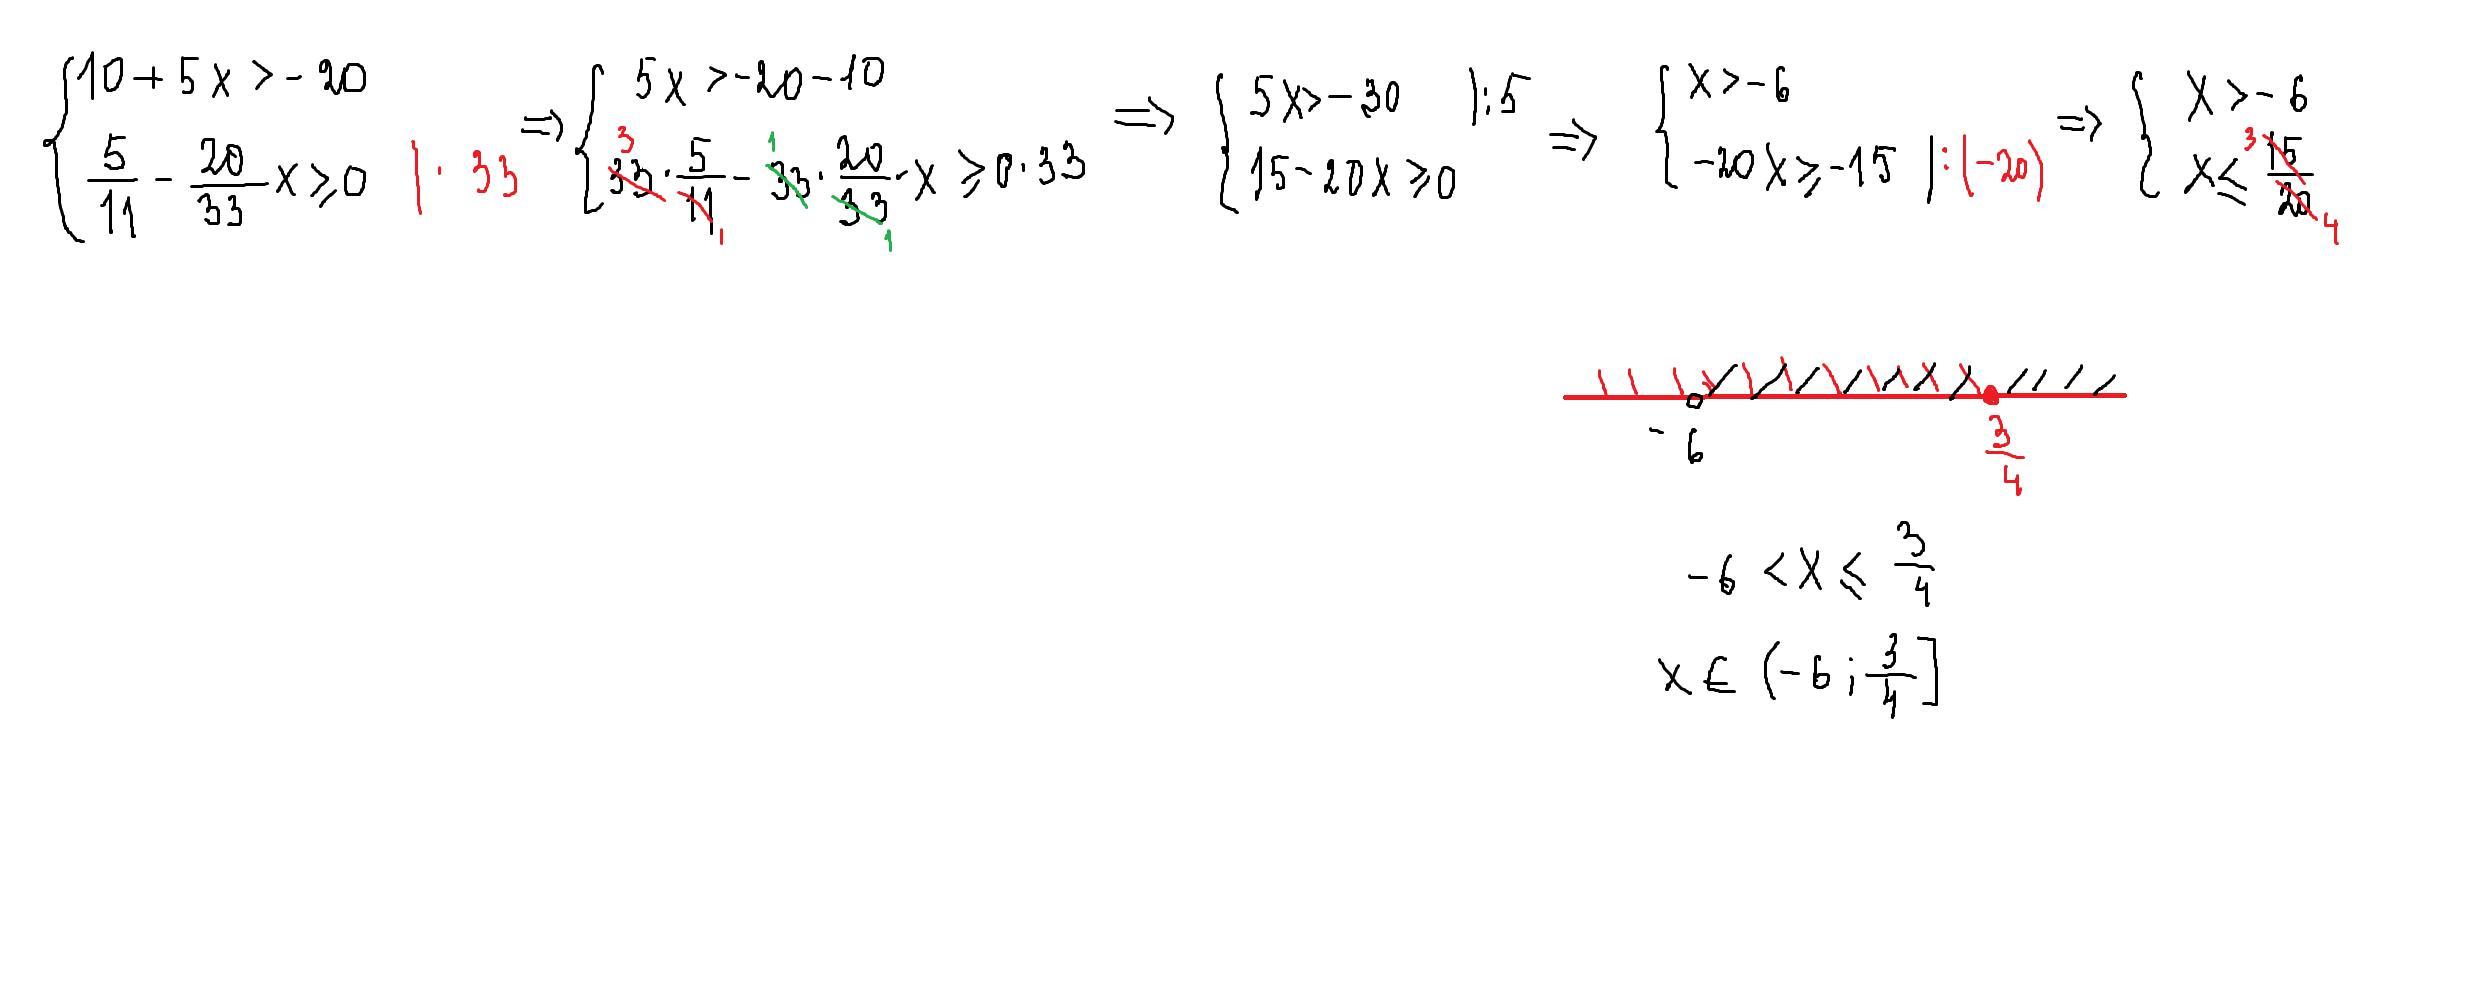 { 10 + 5x > - 20
5/11 - 20/33 x ⩾ 0 | · 33
=> { 5x > -20 - 10
33 · 5/11 - 33 · 20/33 · x ⩾ 0 · 33
3 1 1 1
=> { 5x > - 30 | : 5
15 - 20x ⩾ 0
=> { x > - 6
-20x ⩾ -15 | : (-20)
=> { x > - 6
x ⩽ 15/20
3 4
- 6
3/4
-6 < x ⩽ 3/4
x ∈ (-6 ; 3/4]